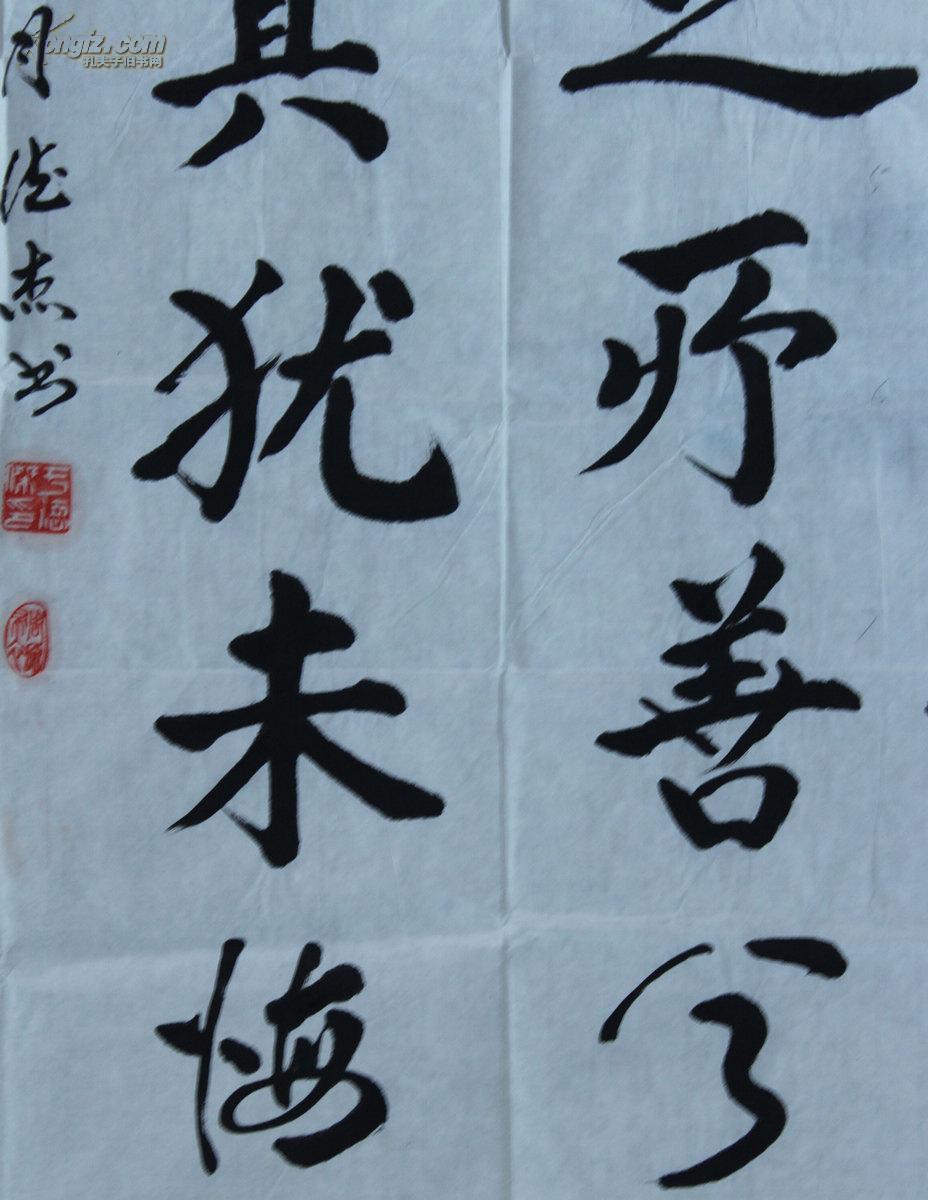 之所善兮
其犹未悔
月德杰书
孔夫子旧书网